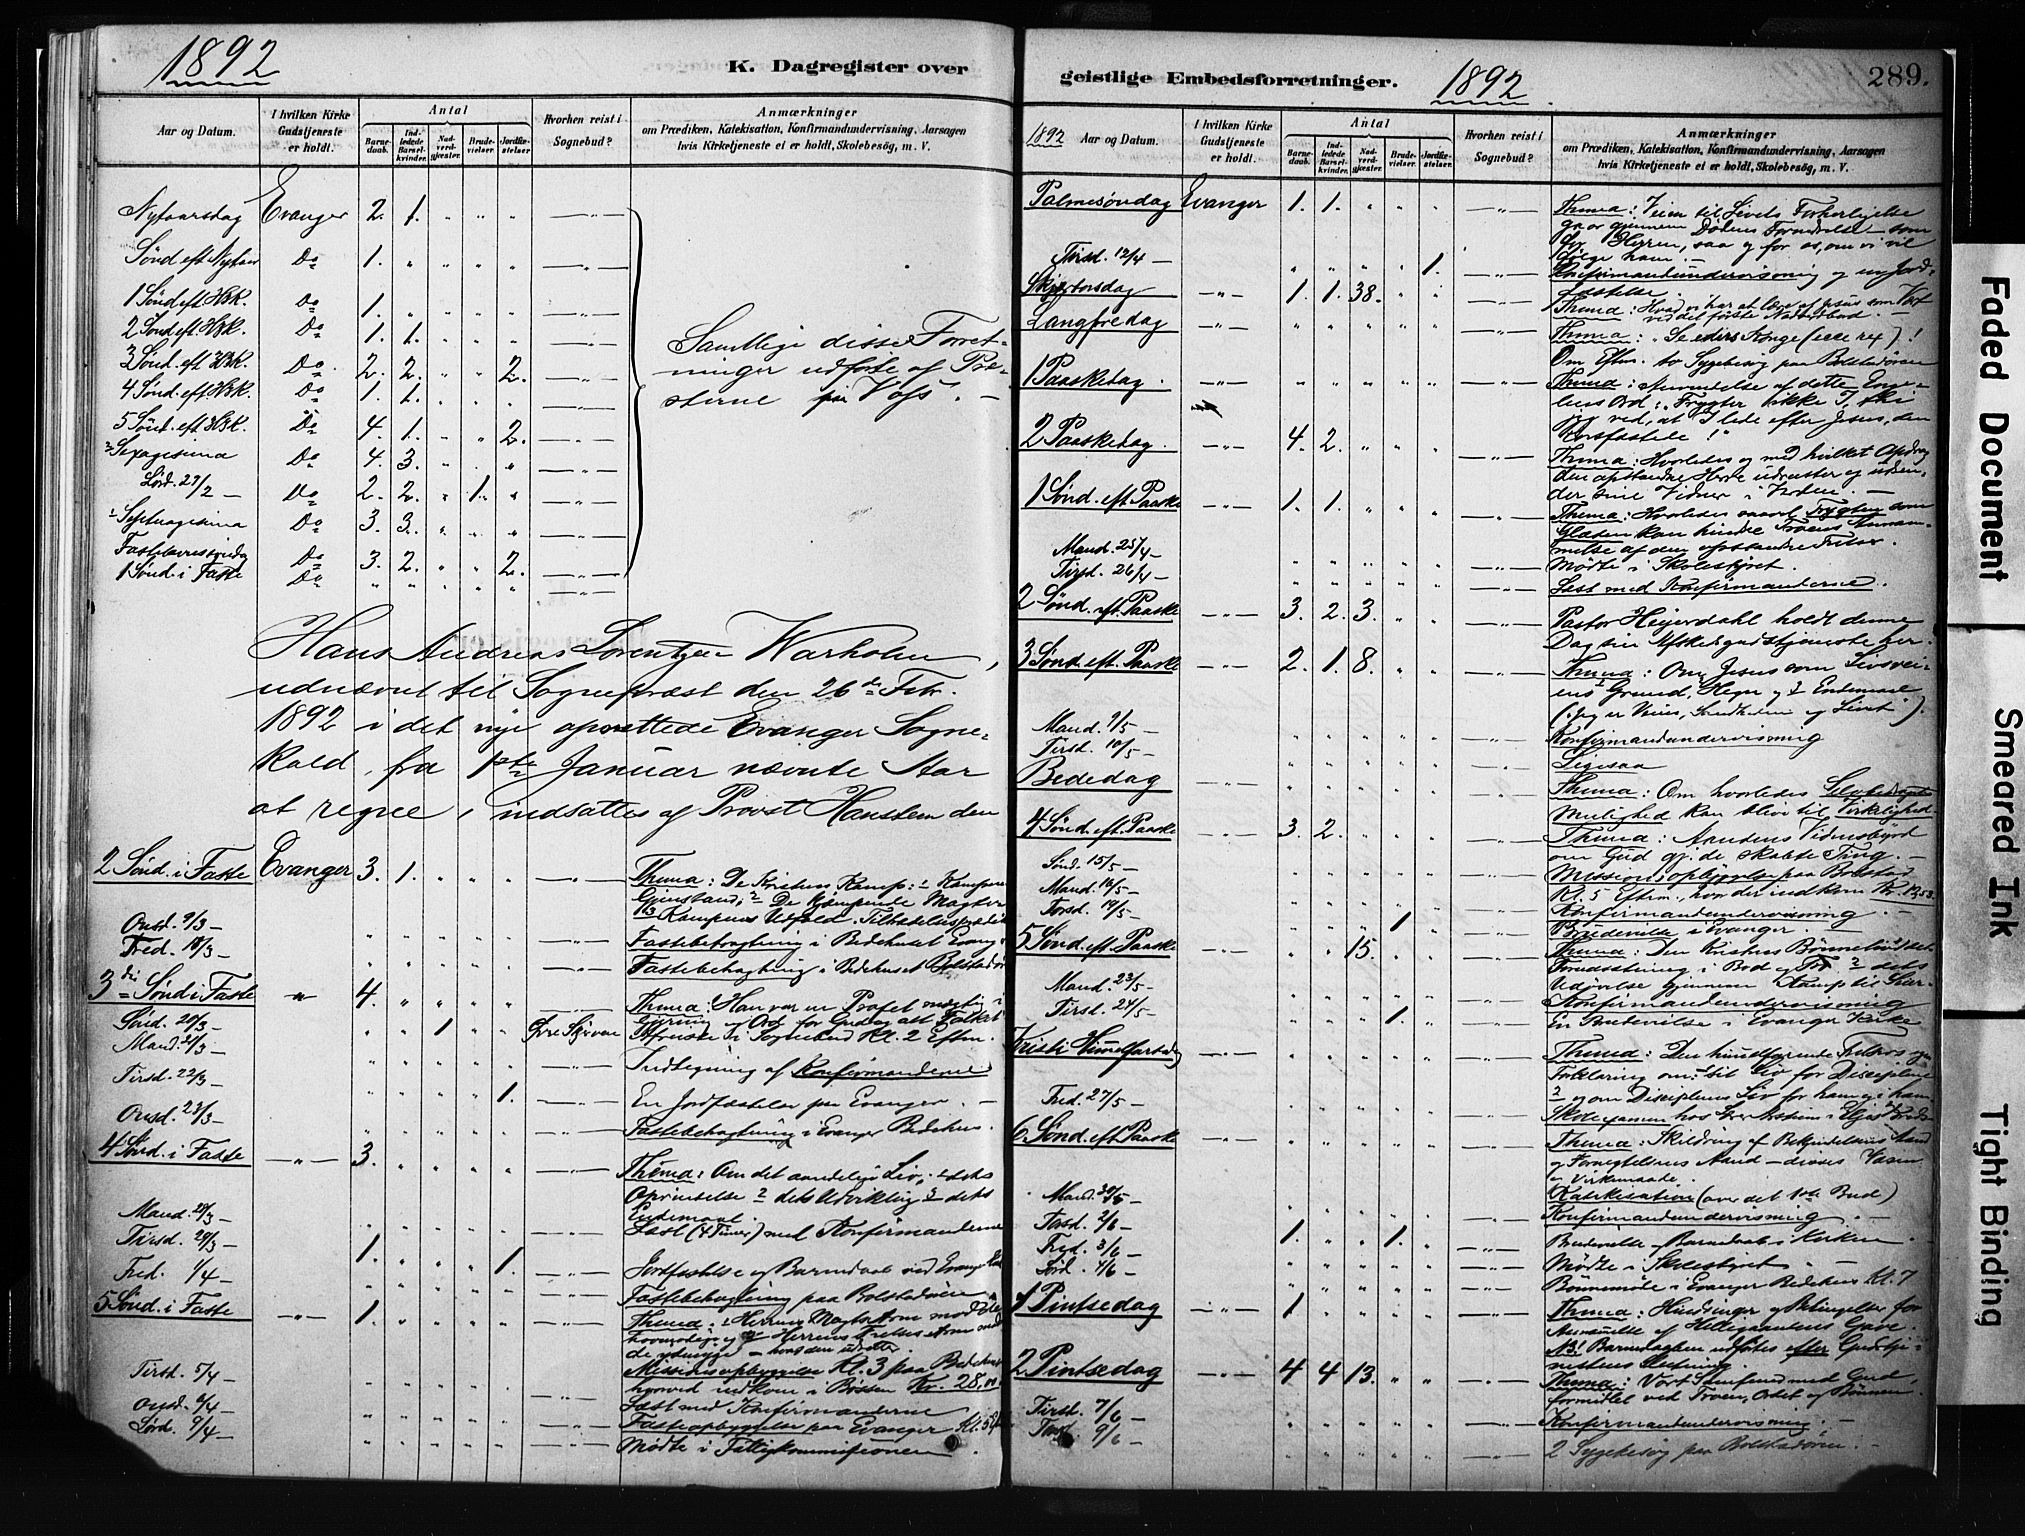 1892
K. Dagregister over
Aar og Datum.
I hvilken Kirke Gudstjeneste er holdt.
Antal
Barnedaab.
Indledede Barselkvinder.
Nadverdgjæster.
Brudevielser.
Jordfæstelser
Hvorhen reist i Sognebud?
Anmærkninger
om Prædiken, Katekisation, Konfirmandundervisning, Aarsagen
hvis Kirketjeneste ei er holdt, Skolebesøg, m. V.
Nytaarsdag Evanger 2. 1. " " " —"—
Sønd eft Nytaar Do 1. " " " " —"—
1 Sønd eft. H3K. Do 1. " " " " —"—
2 Sønd eft. H3K. Do 1. 1. " " " —"—
3 Sønd. eft H3K. Do 2. 2. " " 2. —"—
4 Sønd. eft H3K. Do 1. 1. " " " —"—
5 Sønd. eft H3K. Do 4. 1. " " 2. —"—
Sexagesima Do 4. 3. " " " —"—
Lørd. 27/2 — Do 2. 2. " 1. " —"—
Septuagesima Do 3. 3. " " " —"—
Fastelavnssøndag Do 3. 2. " " 2. —"—
1 Sønd i Faste Do " " " " " —"—
Samtlige disse Forret-
ninger udførte af Præ-
sterne paa Voss. —
Hans Andreas Lorentzen Warholm,
udnævnt til Sognepræst den 26de Febr.
1892 i det nye oprettede Evanger Sogne-
kald, fra 1ste Januar nævnte Aar
at regne, indsattes af Provst Hansteen den
2 Sønd. i Faste Evanger 3. 1. " " " —"— Thema: De Kristnes Kamp: 1 Kampens
Gjenstand; 2 De kjæmpende Magter
3 Kampens Udfald.
Onsd. 9/3 — Fastebetragtning i Bedehuset Evang.
Fred. 11/3 — Fastebetragtning i Bedehuset Bolstadør
3die Sønd i Faste " 4. " " " " Thema: Han var en Profet mægtig i
Gjerning og Ord for Gud og alt Folket
Sønd. 20/3 — " " 1 " " Sognebud Kl. 2 Eftm.
Mand. 21/3 — Indtegning af Konfirmanderne
Tirsd. 22/3 — " " " " 1. —"— En Jordfæstelse paa Evanger. —
Onsd. 23/3 — Fastebetragtning i Evanger Bedehus.
4 Sønd. i Faste —"— 3. " " " " —"— Thema: Om det aandelige Liv, 1 dets
Oprindelse 2 dets Udvikling 3 dets
Endemaal.
Mand. 28/3 — Læst (4 Timer) med Konfirmanderne
Tirsd. 29/3 — 1. " " " 1. —"— Jordfæstelse og Barnedaab ved Evanger
Fred. 1/4 — Fastebetragtning paa Bolstadøren
5 Sønd. i Faste —"— 1. " " " " —"— Thema: 1 Herrens Magts Arm mod de
hovmodige og 2 Herrens Frelses Arm mod
de ydmyge
Tirsd. 5/4 — Missionsopbyggelse Kl. 3 paa Bedehuset
hvorved indkom i Bøssen Kr. 28,00
Onsd. 6/4 — Læst med Konfirmanderne
Fasteopbyggelse paa Evanger Kl. 5
Lørd. 9/4 — Mødte i Fattigkommissionen.
geistlige Embedsforretninger.
1892
289.
1892 Aar og Datum.
I hvilken Kirke Gudstjeneste er holdt.
Antal
Barnedaab.
Indledede Barselkvinder.
Nadverdgjæster.
Brudevielser.
Jordfæstelser.
Hvorhen reist i Sognebud?
Anmærkninger
om Prædiken, Katekisation, Konfirmandundervisning, Aarsagen
hvis Kirketjeneste ei er holdt, Skolebesøg, m. V.
Palmesøndag Evanger 1. 1. " " " —"— Thema: Veien til Livets Forherligelse
gaar gjennem Dødens Fornedrelse som
for Herren, saa og for os, om vi vil
følge ham. —
Tirsd. 12/4 — " " " " 1. —"— Konfirmandundervisning og en Jord-
fæstelse.
Skjærtorsdag —"— 1. 1. 38. " " —"— Thema: Hvad vi har at lære af Jesus som Vert
ved det første Nadverbord. —
Langfredag —"— " " " " " —"— Thema: "Se eders Konge (ecce rex)"!
Om Eftm. to Sygebesøg paa Bolstadøren
1 Paaskedag. —"— " " " " " —"— Thema: Anvendelse af dette Enge-
lens Ord: "Frygter ikke I, thi
jeg ved, at I lede efter Jesus, den
Korsfæstede!"
2 Paaskedag. —"— 4. 2. " " " —"— Thema: Hvorledes og med hvilket Opdrag
den opstandne Herre udruster og udsen-
der sine Vidner i Verden. —
1 Sønd. eft. Paaske —"— 1. 1. " " " —"— Thema: Hvorledes saavel Frygten som
Glæden kan hindre Troens Annam-
melse af den opstandne Frelser.
Mand. 25/4 — Mødte i Skolestyret.
Tirsd. 26/4 — Læst med Konfirmanderne.
2 Sønd. eft. Paaske —"— 3. 2. 3. " " —"— Pastor Heyerdahl holdt denne
Dag sin Afskedsgudstjeneste her.
3 Sønd. eft. Paaske —"— 2. 1. 8. " " —"— Thema: Om Jesus som Livsvei-
ens Grund, og Endemaal
("Jeg er Veien, Sandheden og Livet").
Mand. 9/5 — Konfirmandundervisning
Tirsd. 10/5 — Ligesaa
Bededag Thema: Om hvorledes
Mulighed kan blive til Virkelighed.
4 Sønd. eft. Paaske —"— 3. 2. " " " —"— Thema: Aandens Vidnesbyrd
om Gud
Sønd. 15/5 — Missionsopbyggelse paa Bolstad
Kl. 5 Eftm., hvor der indkom Kr. 12,53.
Mand. 16/5 — Konfirmandundervisning. —
Torsd. 19/5 — " " " 1 " —"— Brudevielse i Evanger. —
5 Sønd. eft. Paaske —"— " " 15. " " —"— Thema: Den Kristnes Bønneliv
Mand. 23/5 — Konfirmandundervisning
Tirsd. 24/5 — " " " 1. " —"— En Brudevielse i Evanger Kirke
Kristi Himmelfartsdag —"— " " " " " —"— Thema: Den himmelfarende Frelsers
Forklaring om 1 sit Liv for Disciplene
2 og om Disciplenes Liv for ham og i ham
Fred. 27/5 — Skoleexamen hos
6 Sønd. eft Paaske —"— " " " " " —"— Thema: Skildring af Bekjendelsens Aand
og Fornegtelsens Aand — disses Væsen
og Virkemaade.
Mand. 30/5 — Katekisation (over det 10de Bud)
Torsd. 2/6 — Konfirmandundervisning. —
Fred. 3/6 — 1. " " 1. " —"— Brudevielse og Barnedaab i Kirken.
Mødte i Skolestyret.
Lørd. 4/6 — Bønnemøte i Evanger Bedehus Kl. 7
1 Pintsedag —"— 1 " " " " —"— Thema: Hindringer og Betingelser for
Annammelse af Helligaandens Gave.
NB! Barnedaaben udførtes efter Gudstje-
nestens Slutning.
2 Pintsedag —"— 4 4 13. " " —"— Thema: Vort Samfund med Gud,
formidlet ved Troen, Ordet og Bønnen
Tirsd. 7/6 — Konfirmandundervisning. —
Torsd. 9/6 — 2 Sygebesøg paa Bolstadøren. —
Faded Document
Smeared Ink
Tight Binding